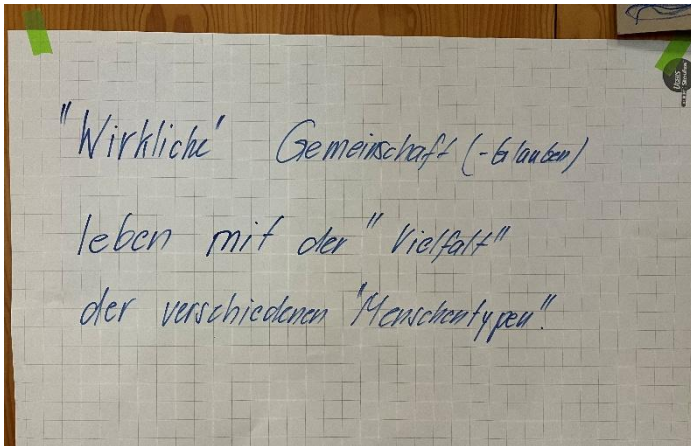 "Wirkliche" Gemeinschaft (-Glauben)
leben mit der "Vielfalt"
der verschiedenen "Menschentypen".